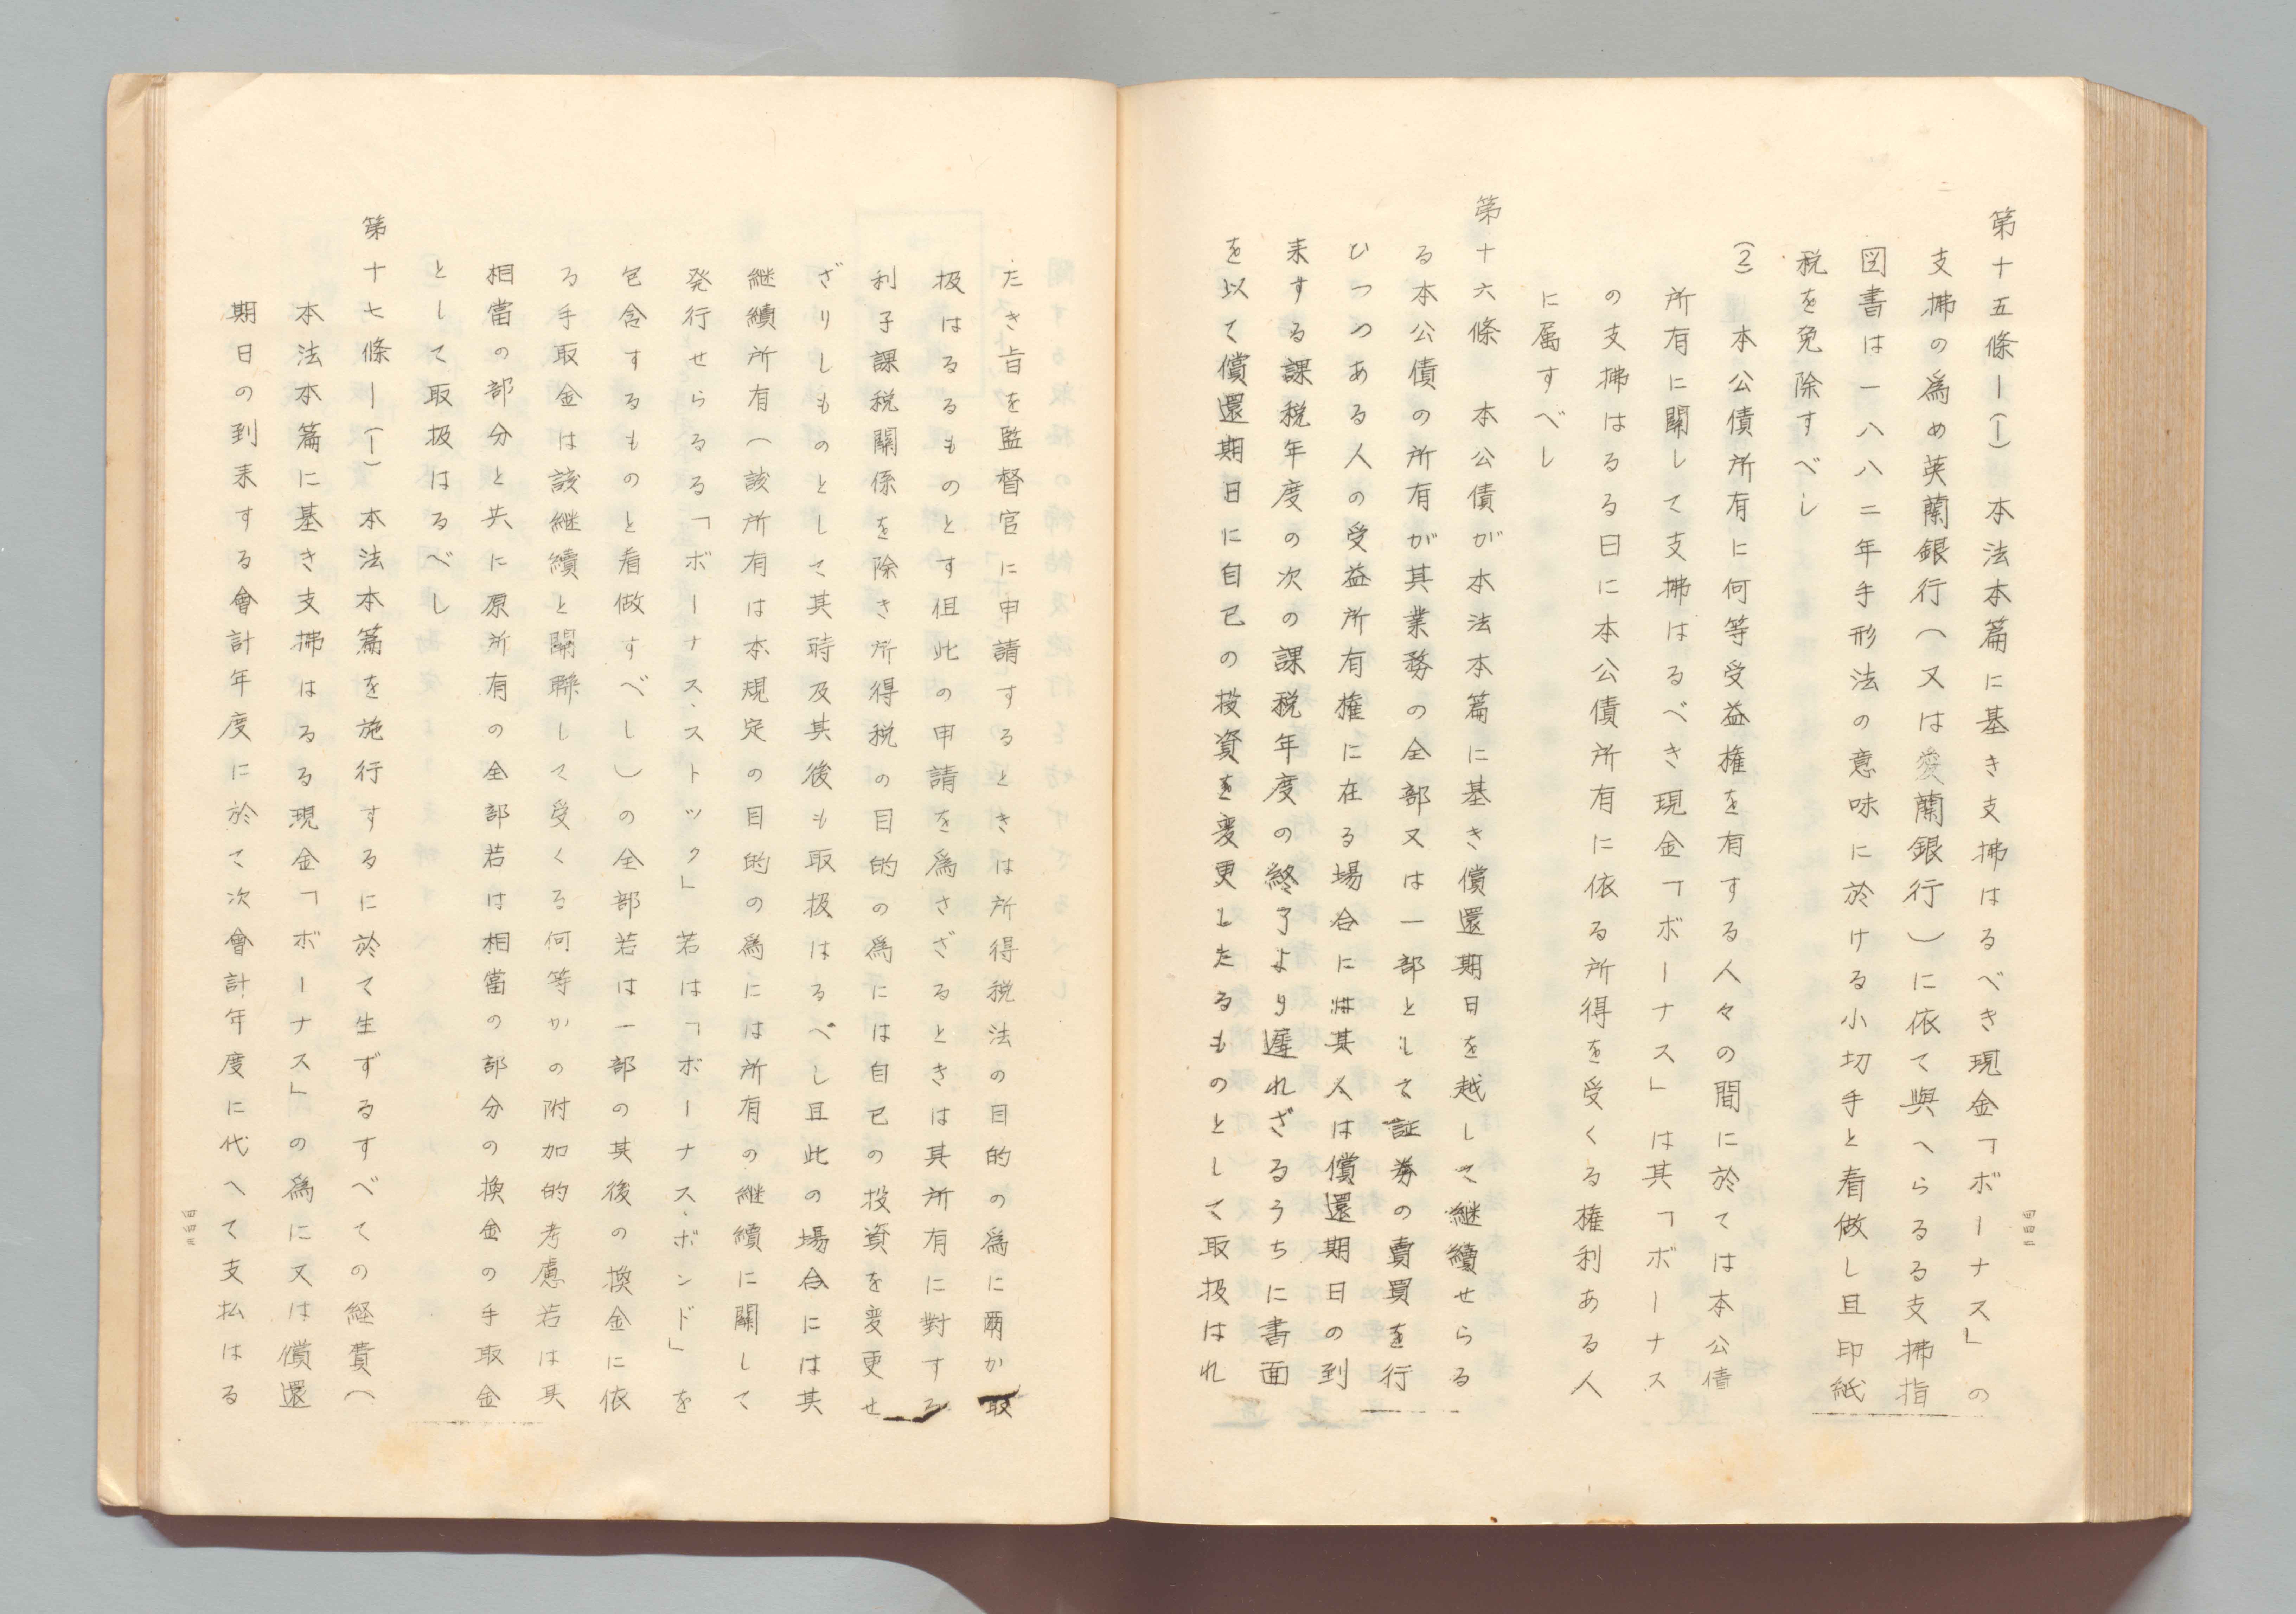 第十五條ー(1)　本法本篇に基き支拂はるべき現金「ボーナス」の
支拂の爲め英蘭銀行(又は愛蘭銀行)に依て與へらるる支拂指
図書は一八八二年手形法の意味に於ける小切手と看做し且印紙
税を免除すべし
(2)　本公債所有に何等受益権を有する人々の間に於ては本公債
所有に關して支拂はるべき現金「ボーナス」は其「ボーナス
の支拂はるる日に本公債所有に依る所得を受くる権利ある人
に属すべし
第十六條　本公債が本法本篇に基き償還期日を越して継續せらる
る本公債の所有が其業務の全部又は一部として証券の賣買を行
ひつつある人の受益所有権に在る場合には其人は償還期日の到
来する課税年度の次の課税年度の終了より遅れざるうちに書面
を以て償還期日に自己の投資を変更したるものとして取扱はれ
四四二
たき旨を監督官に申請するときは所得税法の目的の為に爾か取
扱はるるものとす但此の申請を爲さざるときは其所有に對する
利子課税關係を除き所得税の目的の爲には自己の投資を変更せ
ざりしものとして其時及其後も取扱はるべし且此の場合には其
継續所有(該所有は本規定の目的の爲には所有の継續に關して
発行せらるる「ボーナス、ストック」若は「ボーナス、ボンド」を
包含するものと看做すべし)の全部若は一部の其後の換金に依
る手取金は該継續と關聯して受くる何等かの附加的考慮若は其
相當の部分と共に原所有の全部若は相當の部分の換金の手取金
として取扱はるべし
第十七條ー(1)　本法本篇を施行するに於て生ずるすべての経費(
本法本篇に基き支拂はる現金「ボーナス」の爲に又は償還
期日の到来する會計年度に於て次會計年度に代へて支払はる
四四三